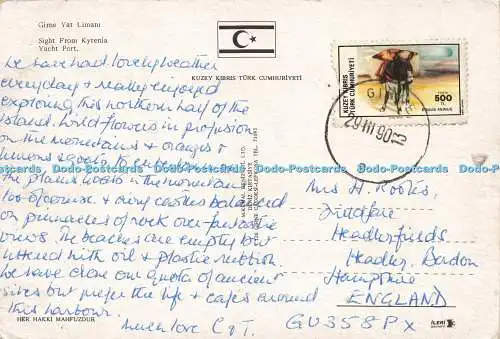 Girne Yat Limanı
Sight From Kyrenia
Yacht Port.
KUZEY KIBRIS TÜRK CUMHURİYETİ
KUZEY KIBRIS
TÜRK CUMHURİYETİ
500
EQUUS ASINUS
GI
29 III 90
We have had lovely weather
everyday & really enjoyed
exploring this northern half of the
island. Wild flowers in profusion
on the mountains & oranges &
lemons
the plains. Walks in the mountains
& crazy castles balanced
on pinnacles of rock over fantastic
views. The beaches are empty but
littered with oil & plastic rubbish
We have done our quota of ancient
sites but prefer the life & cafes around
this harbour.
Much love C & T.
HER HAKKI MAHFUZDUR
Mrs H. Rooke
Headley Fields
Headley, Bordon
Hampshire
ENGLAND
GU35 8PX
İLERİ
Dodo-Postcards Dodo-Postcards Dodo-Postcards Dodo-Postcards